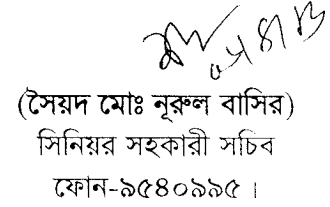 (সৈয়দ মোঃ নূরুল বাসির)
সিনিয়র সহকারী সচিব
ফোন-৯৫৪০৯৯৫।